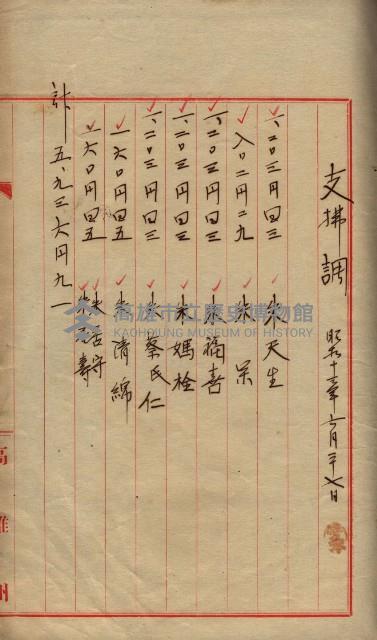 支拂調 昭和十二年
一、二〇三円四三 朱天生
八〇二円二九 朱 呆
一、二〇三円四三 朱福喜
一、二〇三円四三 朱媽栓
一、二〇三円四三 朱蔡氏仁
一六〇円四五 朱清綿
一六〇円四五 朱 守
朱 壽
計 五、九三六円九一
高雄州
高雄市立歷史博物館
KAOHSIUNG MUSEUM OF HISTORY